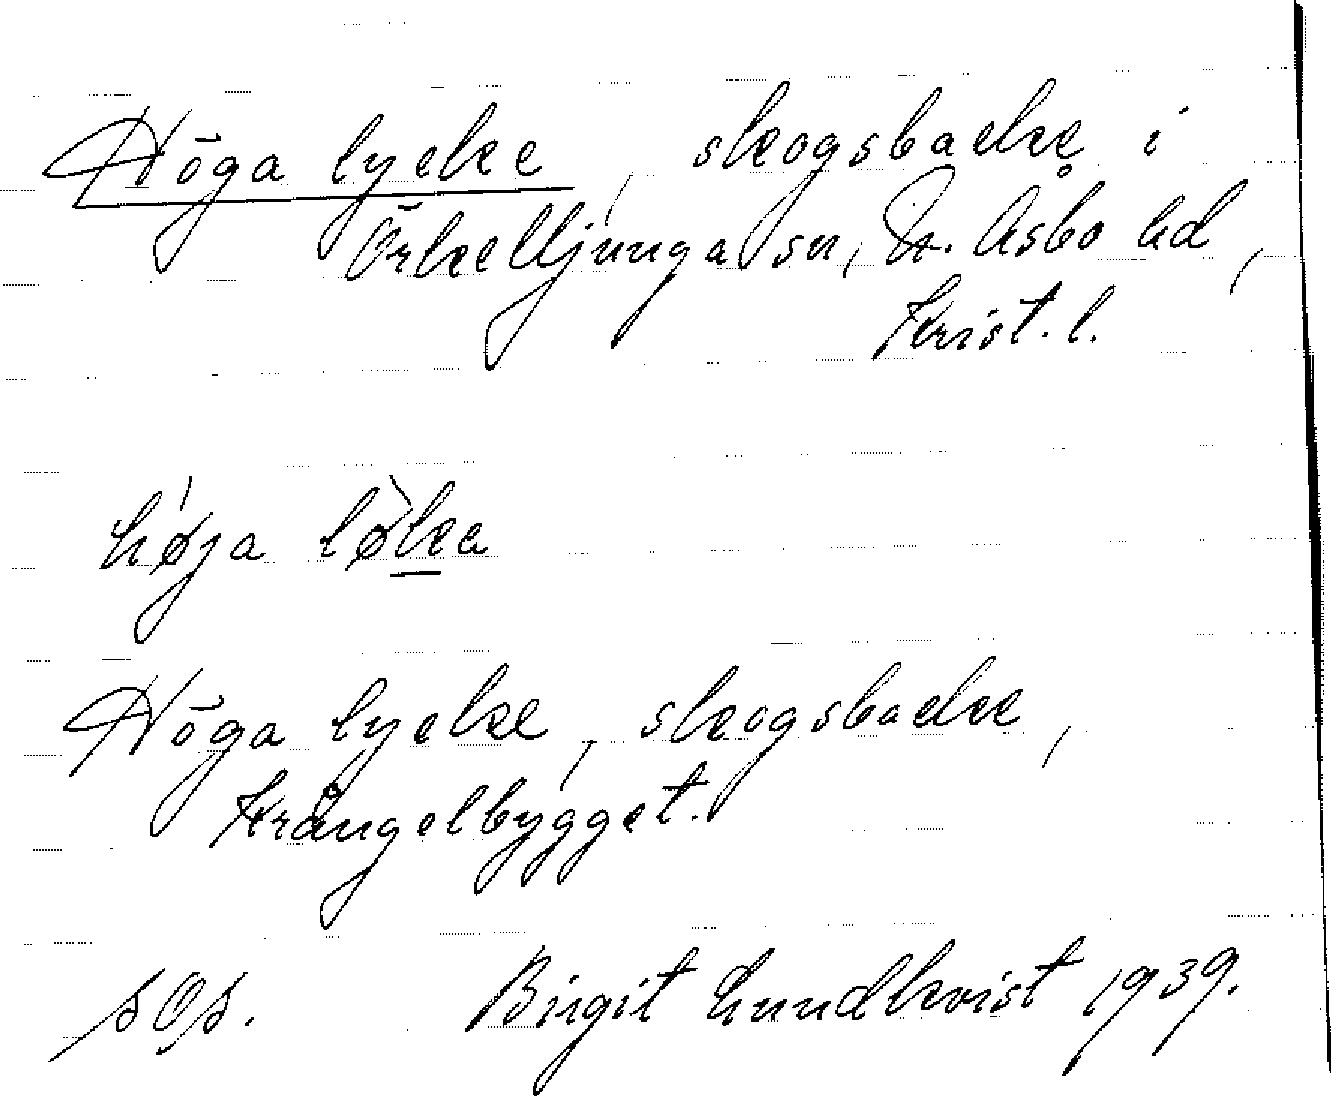 Höga lycke, skogsbacke i
Örkelljunga sn, N. Åsbo hd,
Krist. l.
høja løka
Höga lycke, skogsbacke,
Krångelbygget.
Birgit Lundkvist 1939.